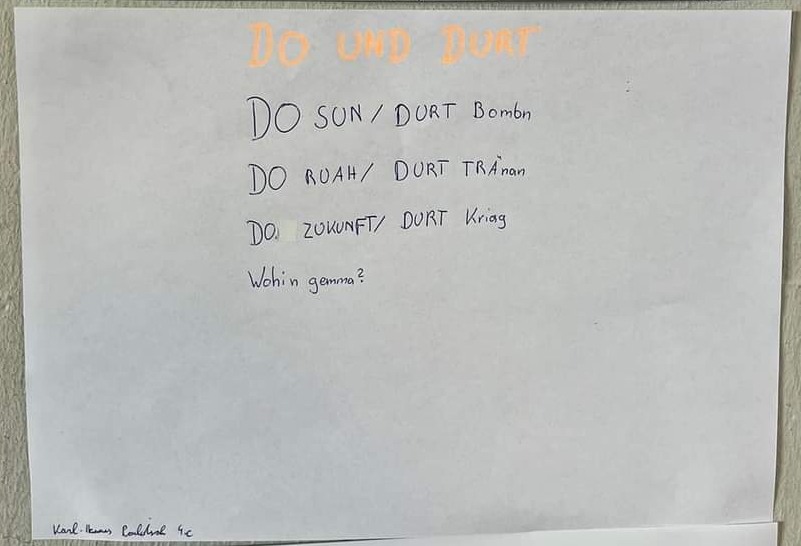 DO UND DURT
DO SUN / DURT Bombn
DO RUAH / DURT TRÄnan
DO ZUKUNFT / DURT Kriag
Wohin gemma?
Karl- 4c